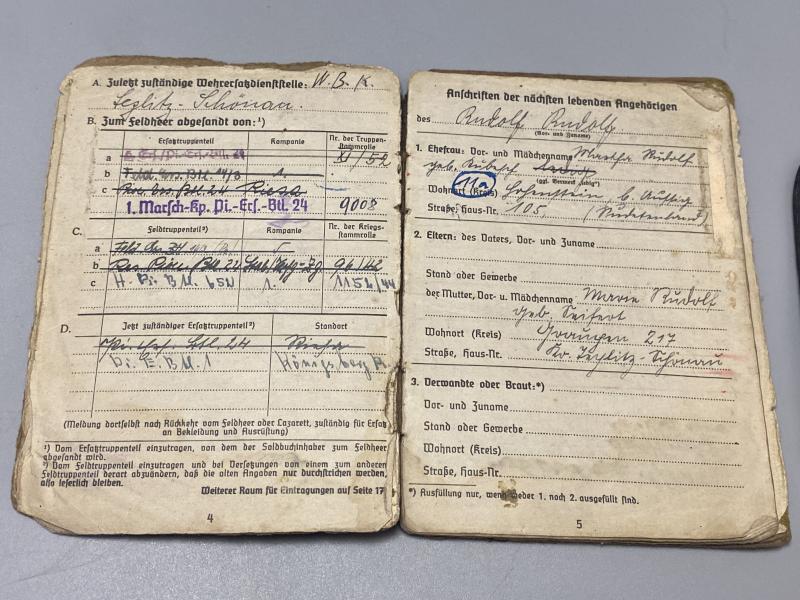 A. Zuletzt zuständige Wehrersatzdienststelle: W.B.K.
Teplitz-Schönau.
B. Zum Feldheer abgesandt von:¹)
Ersatztruppenteil Kompanie Nr. der Truppenstammrolle
a XI/52
b 1.
c Btl. 24 Riesa
1. Marsch-Kp. Pi.-Ers.-Btl. 24 9008
C. Feldtruppenteil²) Kompanie Nr. der Kriegsstammrolle
a
b 96/42
c H. Pi. Btl. 652 1. 1152/44
D. Jetzt zuständiger Ersatztruppenteil³) Standort
Btl. 24 Riesa
Pi. E. Btl. 1 Königsberg
(Meldung dortselbst nach Rückkehr vom Feldheer oder Lazarett, zuständig für Ersatz an Bekleidung und Ausrüstung)
¹) Vom Ersatztruppenteil einzutragen, von dem der Soldbuchinhaber zum Feldheer
abgesandt wird.
²) Vom Feldtruppenteil einzutragen und bei Versetzungen von einem zum anderen
Feldtruppenteil derart abzuändern, daß die alten Angaben nur durchstrichen werden,
also leserlich bleiben.
Weiterer Raum für Eintragungen auf Seite 17
4
Anschriften der nächsten lebenden Angehörigen
des Rudolf Rudolf
(Vor- und Zuname)
1. Ehefrau: Vor- und Mädchenname Martha Rudolf
geb.
(ggf. Vermerk „ledig“)
Wohnort (Kreis) 11a b. Aussig
Straße, Haus-Nr. 105 (Sudetenland)
2. Eltern: des Vaters, Vor- und Zuname
Stand oder Gewerbe
der Mutter, Vor- u. Mädchenname Marie Rudolf
geb. Seifert
Wohnort (Kreis) Graupen 217
Straße, Haus-Nr. Kr. Teplitz-Schönau
3. Verwandte oder Braut:*)
Vor- und Zuname
Stand oder Gewerbe
Wohnort (Kreis)
Straße, Haus-Nr.
*) Ausfüllung nur, wenn weder 1. noch 2. ausgefüllt sind.
5